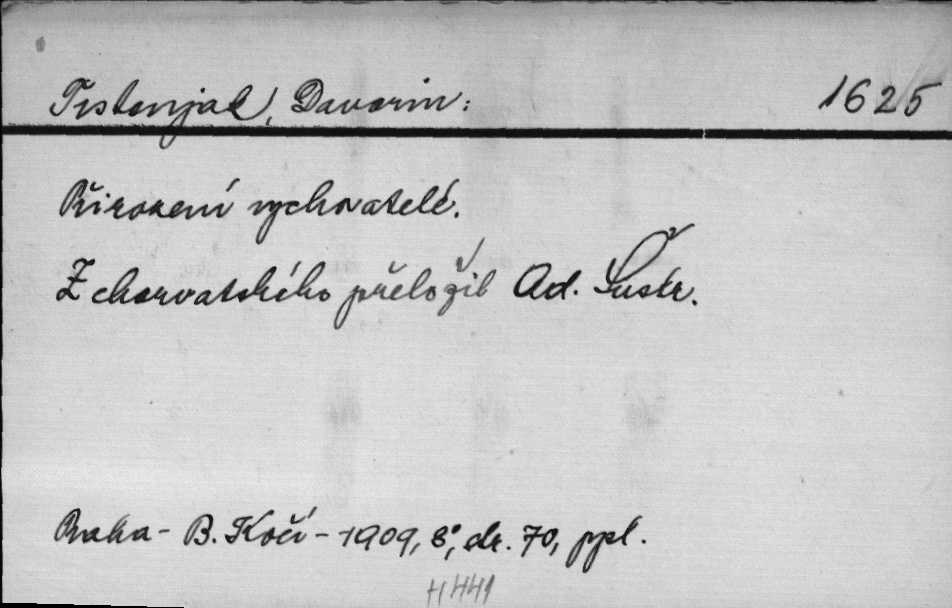 Trstenjak, Davorin: 1625
Přirození vychovatelé.
Z charvatského přeložil Ad. Šustr.
Praha - B. Kočí - 1909, 8°, str. 70, ppl.
H 441